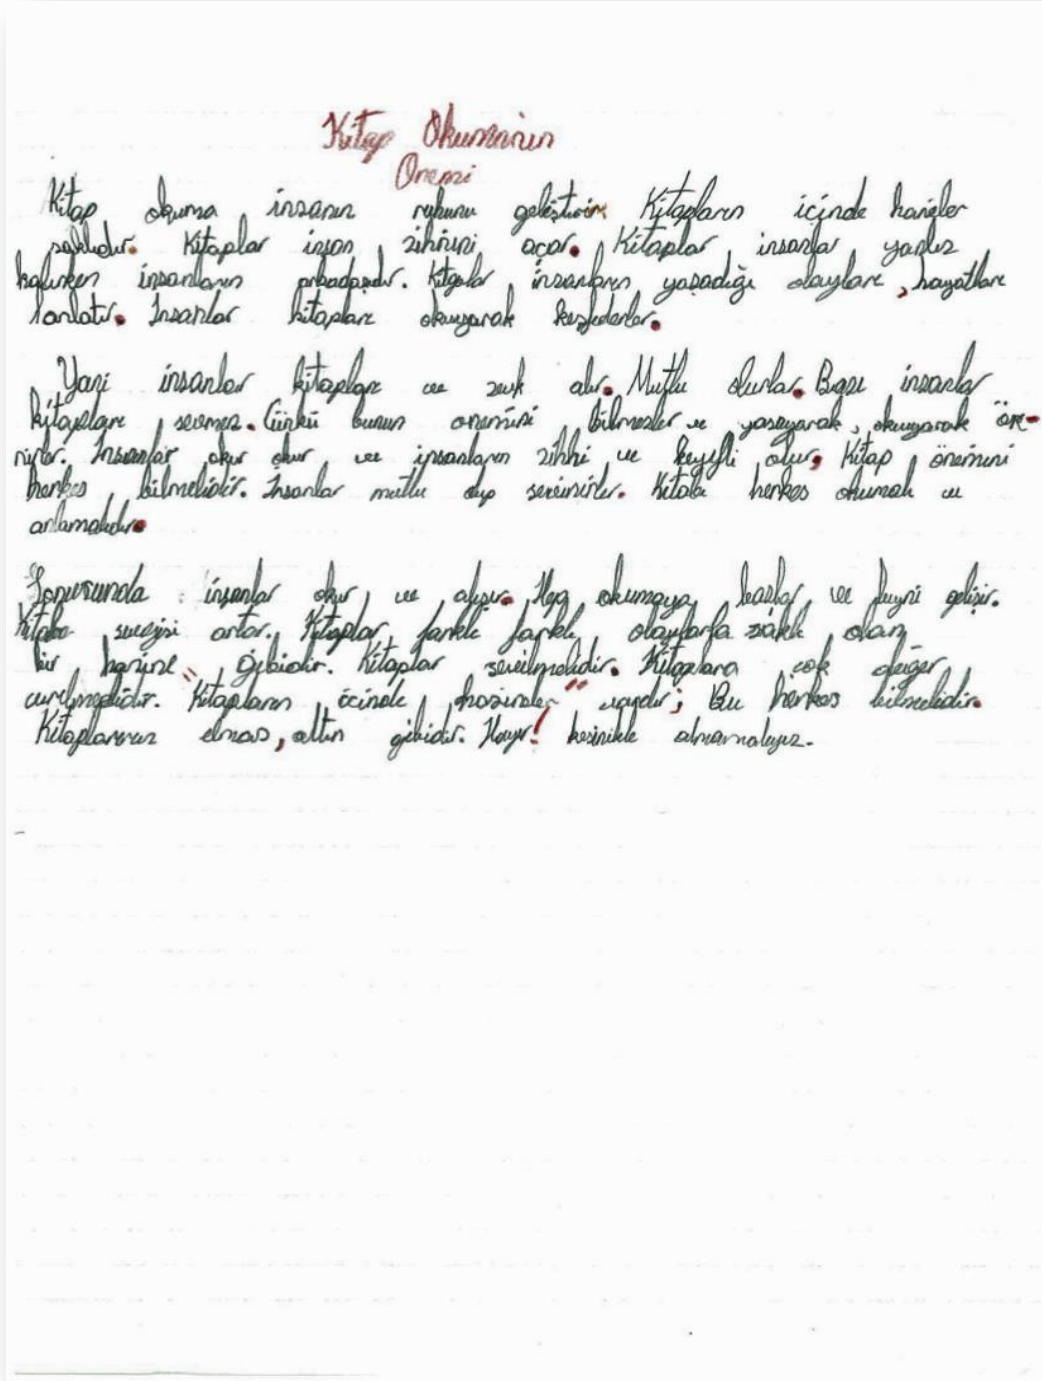 Kitap Okumanın
Önemi
Kitap okuma insanın ruhunu geliştirir. Kitapların içinde
saklıdır. Kitaplar insan zihnini açar. Kitaplar insanlar yanlız
kalırken insanların arkadaşıdır. Kitaplar insanların yaşadığı olayları, hayatları
anlatır. İnsanlar kitapları okuyarak keşfederler.
Yani insanlar kitapları ve zevk alır. Mutlu olurlar. Bazı insanlar
kitapları sevmez. Çünkü bunun önemini bilmezler ve yaşayarak, okuyarak öğre-
nirler. İnsanlar okur okur ve insanların zihni ve keyifli olur. Kitap önemini
herkes bilmelidir. İnsanlar mutlu olup sevinirler. Kitabı herkes okumalı ve
anlamalıdır.
Sonucunda insanlar okur ve alışır. Hep okumaya başlar ve beyni gelişir.
Kitaba sevgisi artar. Kitaplar farklı farklı olaylarla saklı olan
bir hazine gibidir. Kitaplar sevilmelidir. Kitaplara çok değer
verilmelidir. Kitapların içinde " " vardır; Bu herkes bilmelidir.
Kitaplarımız elmas, altın gibidir. Hayır! kesinlikle atmamalıyız.